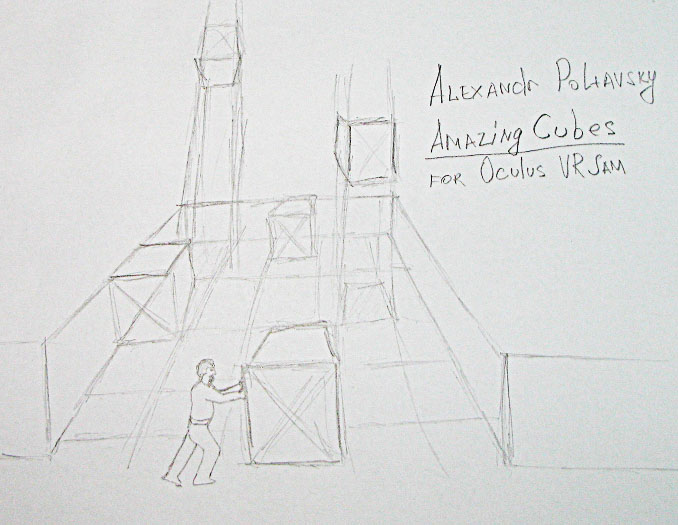 Alexandr Poltavsky
Amazing Cubes
for Oculus VR Jam